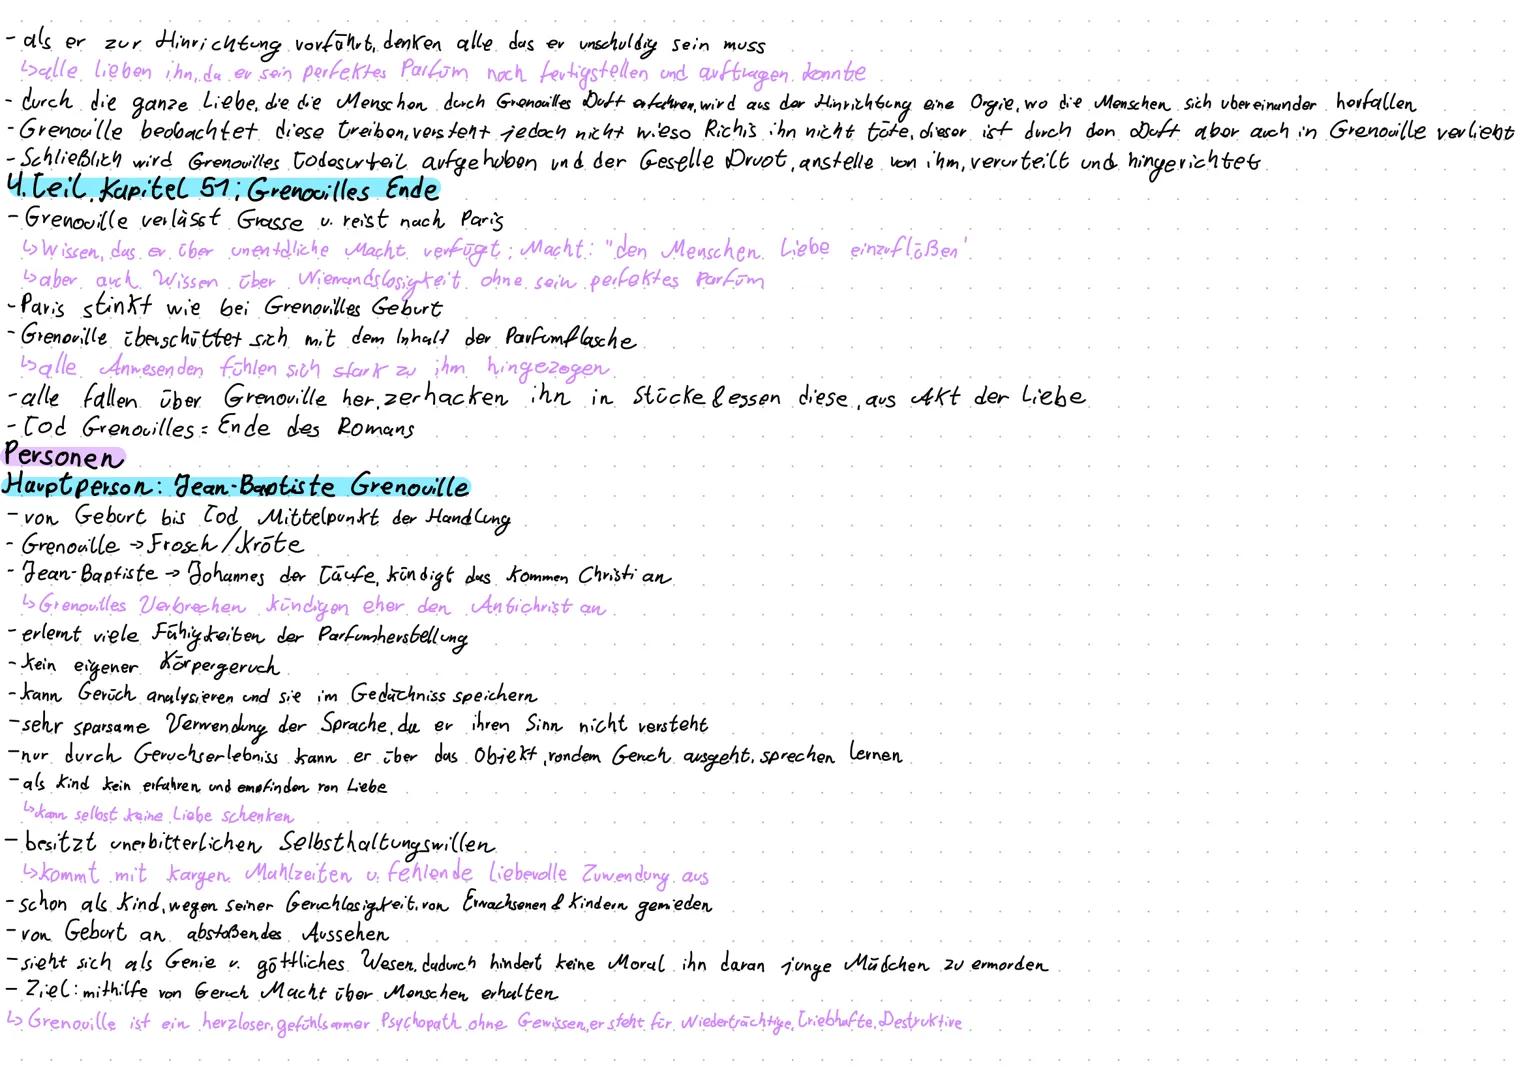 - als er zur Hinrichtung vorführt, denken alle das er unschuldig sein muss
↳alle lieben ihn, da er sein perfektes Parfüm noch fertigstellen und auftragen konnte
- durch die ganze Liebe, die die Menschen durch Grenouilles Duft erfahren, wird aus der Hinrichtung eine Orgie, wo die Menschen sich übereinander herfallen
- Grenouille beobachtet diese treiben, versteht jedoch nicht wieso Richis ihn nicht töte, dieser ist durch den Duft aber auch in Grenouille verliebt
- Schließlich wird Grenouilles Todesurteil aufgehoben und der Geselle Druot, anstelle von ihm, verurteilt und hingerichtet
4. Teil, Kapitel 51; Grenouilles Ende
- Grenouille verlässt Grasse u. reist nach Paris
↳Wissen, das er über unentdliche Macht verfügt; Macht: "den Menschen Liebe einzuflößen"
↳aber auch Wissen über Niemandslosigkeit ohne sein perfektes Parfüm
- Paris stinkt wie bei Grenouilles Geburt
- Grenouille überschüttet sich mit dem Inhalt der Parfumflasche
↳alle Anwesenden fühlen sich stark zu ihm hingezogen
- alle fallen über Grenouille her, zerhacken ihn in Stücke & essen diese, aus Akt der Liebe
- Tod Grenouilles = Ende des Romans
Personen
Hauptperson: Jean-Baptiste Grenouille
- von Geburt bis Tod Mittelpunkt der Handlung
- Grenouille → Frosch/Kröte
- Jean-Baptiste → Johannes der Täufe, kündigt das Kommen Christi an
↳Grenouilles Verbrechen kündigen eher den Antichrist an
- erlernt viele Fähigkeiten der Parfumherstellung
- kein eigener Körpergeruch
- kann Gerüch analysieren und sie im Gedächniss speichern
- sehr sparsame Verwendung der Sprache, da er ihren Sinn nicht versteht
- nur durch Geruchserlebniss kann er über das Objekt, vondem Geruch ausgeht, sprechen lernen
- als Kind kein erfahren und empfinden von Liebe
↳kann selbst keine Liebe schenken
- besitzt unerbitterlichen Selbsthaltungswillen
↳kommt mit kargen Mahlzeiten u. fehlende liebevolle Zuwendung aus
- schon als Kind, wegen seiner Geruchlosigkeit, von Erwachsenen & Kindern gemieden
- von Geburt an abstoßendes Aussehen
- sieht sich als Genie u. göttliches Wesen, dadurch hindert keine Moral ihn daran junge Mädchen zu ermorden
- Ziel: mithilfe von Geruch Macht über Menschen erhalten
↳ Grenouille ist ein herzloser, gefühlsarmer Psychopath ohne Gewissen, er steht für Niederträchtige, Triebhafte, Destruktive